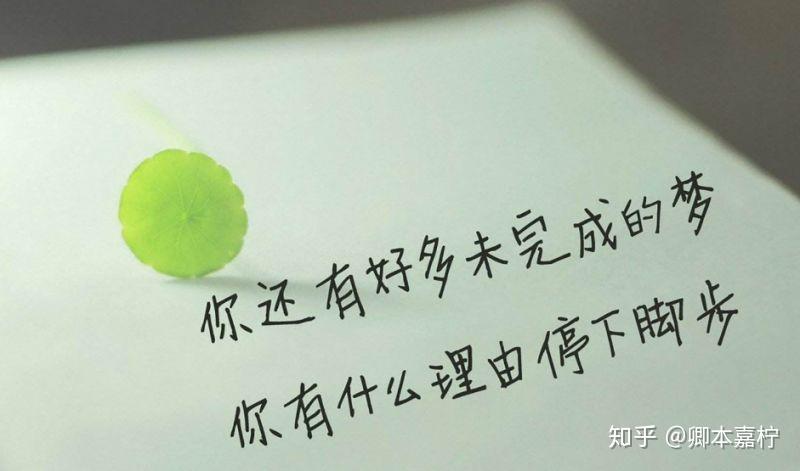 你还有好多未完成的梦
你有什么理由停下脚步
知乎 @卿本嘉柠